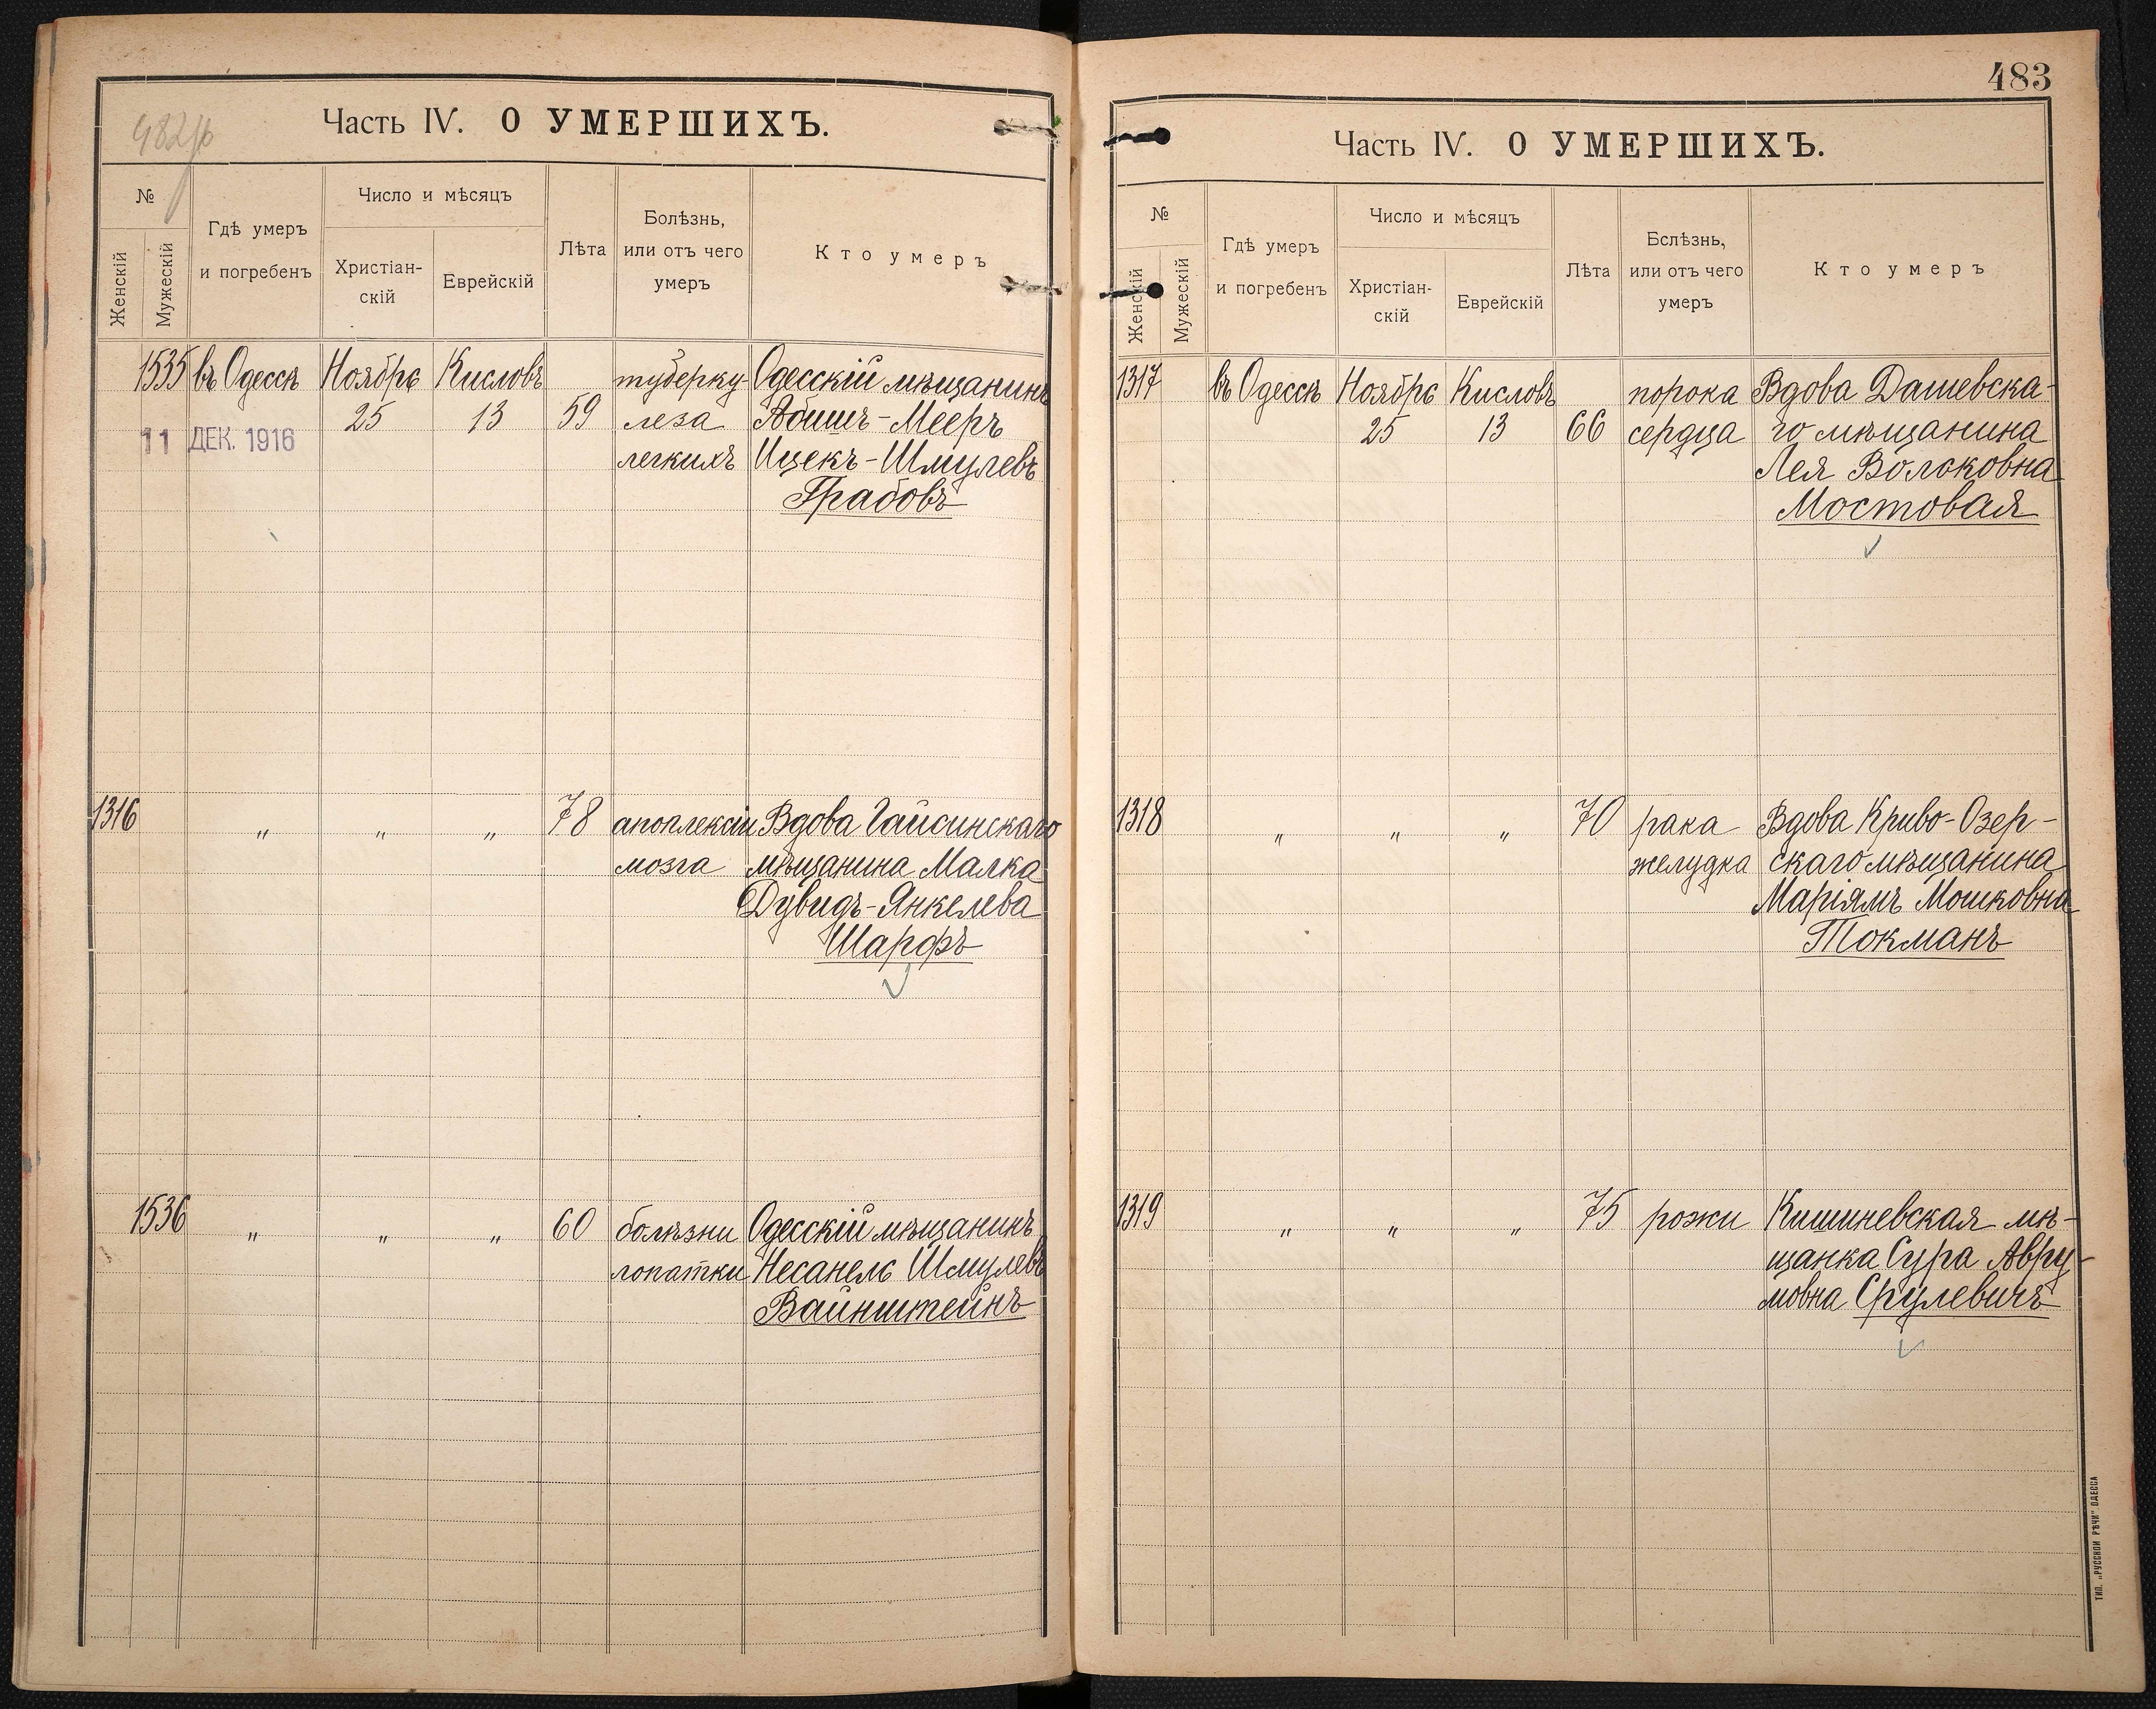 482/б
Часть IV. О УМЕРШИХЪ.
№
Женскій
Мужескій
Гдѣ умеръ
и погребенъ
Число и мѣсяцъ
Христіан-
скій
Еврейскій
Лѣта
Болѣзнь,
или отъ чего
умеръ
Кто умеръ
1535 въ Одессѣ Ноября Кисловъ туберку- Одесскій мѣщанинъ
25 13 59 леза Абишъ-Мееръ
11 ДЕК. 1916
легкихъ Ицекъ-Шмулевъ
Грабовъ
1316 " " " 78 апоплексіи Вдова Гайсинскаго
мозга мѣщанина Малка
Дувидъ-Янкелева
Шарфъ
1536 " " " 60 болѣзни Одесскій мѣщанинъ
лопатки Несанель Шмулевъ
Вайнштейнъ
483
Часть IV. О УМЕРШИХЪ.
№
Женскій
Мужескій
Гдѣ умеръ
и погребенъ
Число и мѣсяцъ
Христіан-
скій
Еврейскій
Лѣта
Бслѣзнь,
или отъ чего
умеръ
Кто умеръ
1317 въ Одессѣ Ноября Кисловъ порока Вдова Дашевска-
25 13 66 сердца го мѣщанина
Лея Волоковна
Мостовая
1318 " " " 70 рака Вдова Криво-Озер-
желудка скаго мѣщанина
Маріямъ Мошковна
Токманъ
1319 " " " 75 рожи Кишиневская мѣ-
щанка Сура Авру-
мовна Срулевичъ
ТИП. „РУССКОЙ РѢЧИ" ОДЕССА